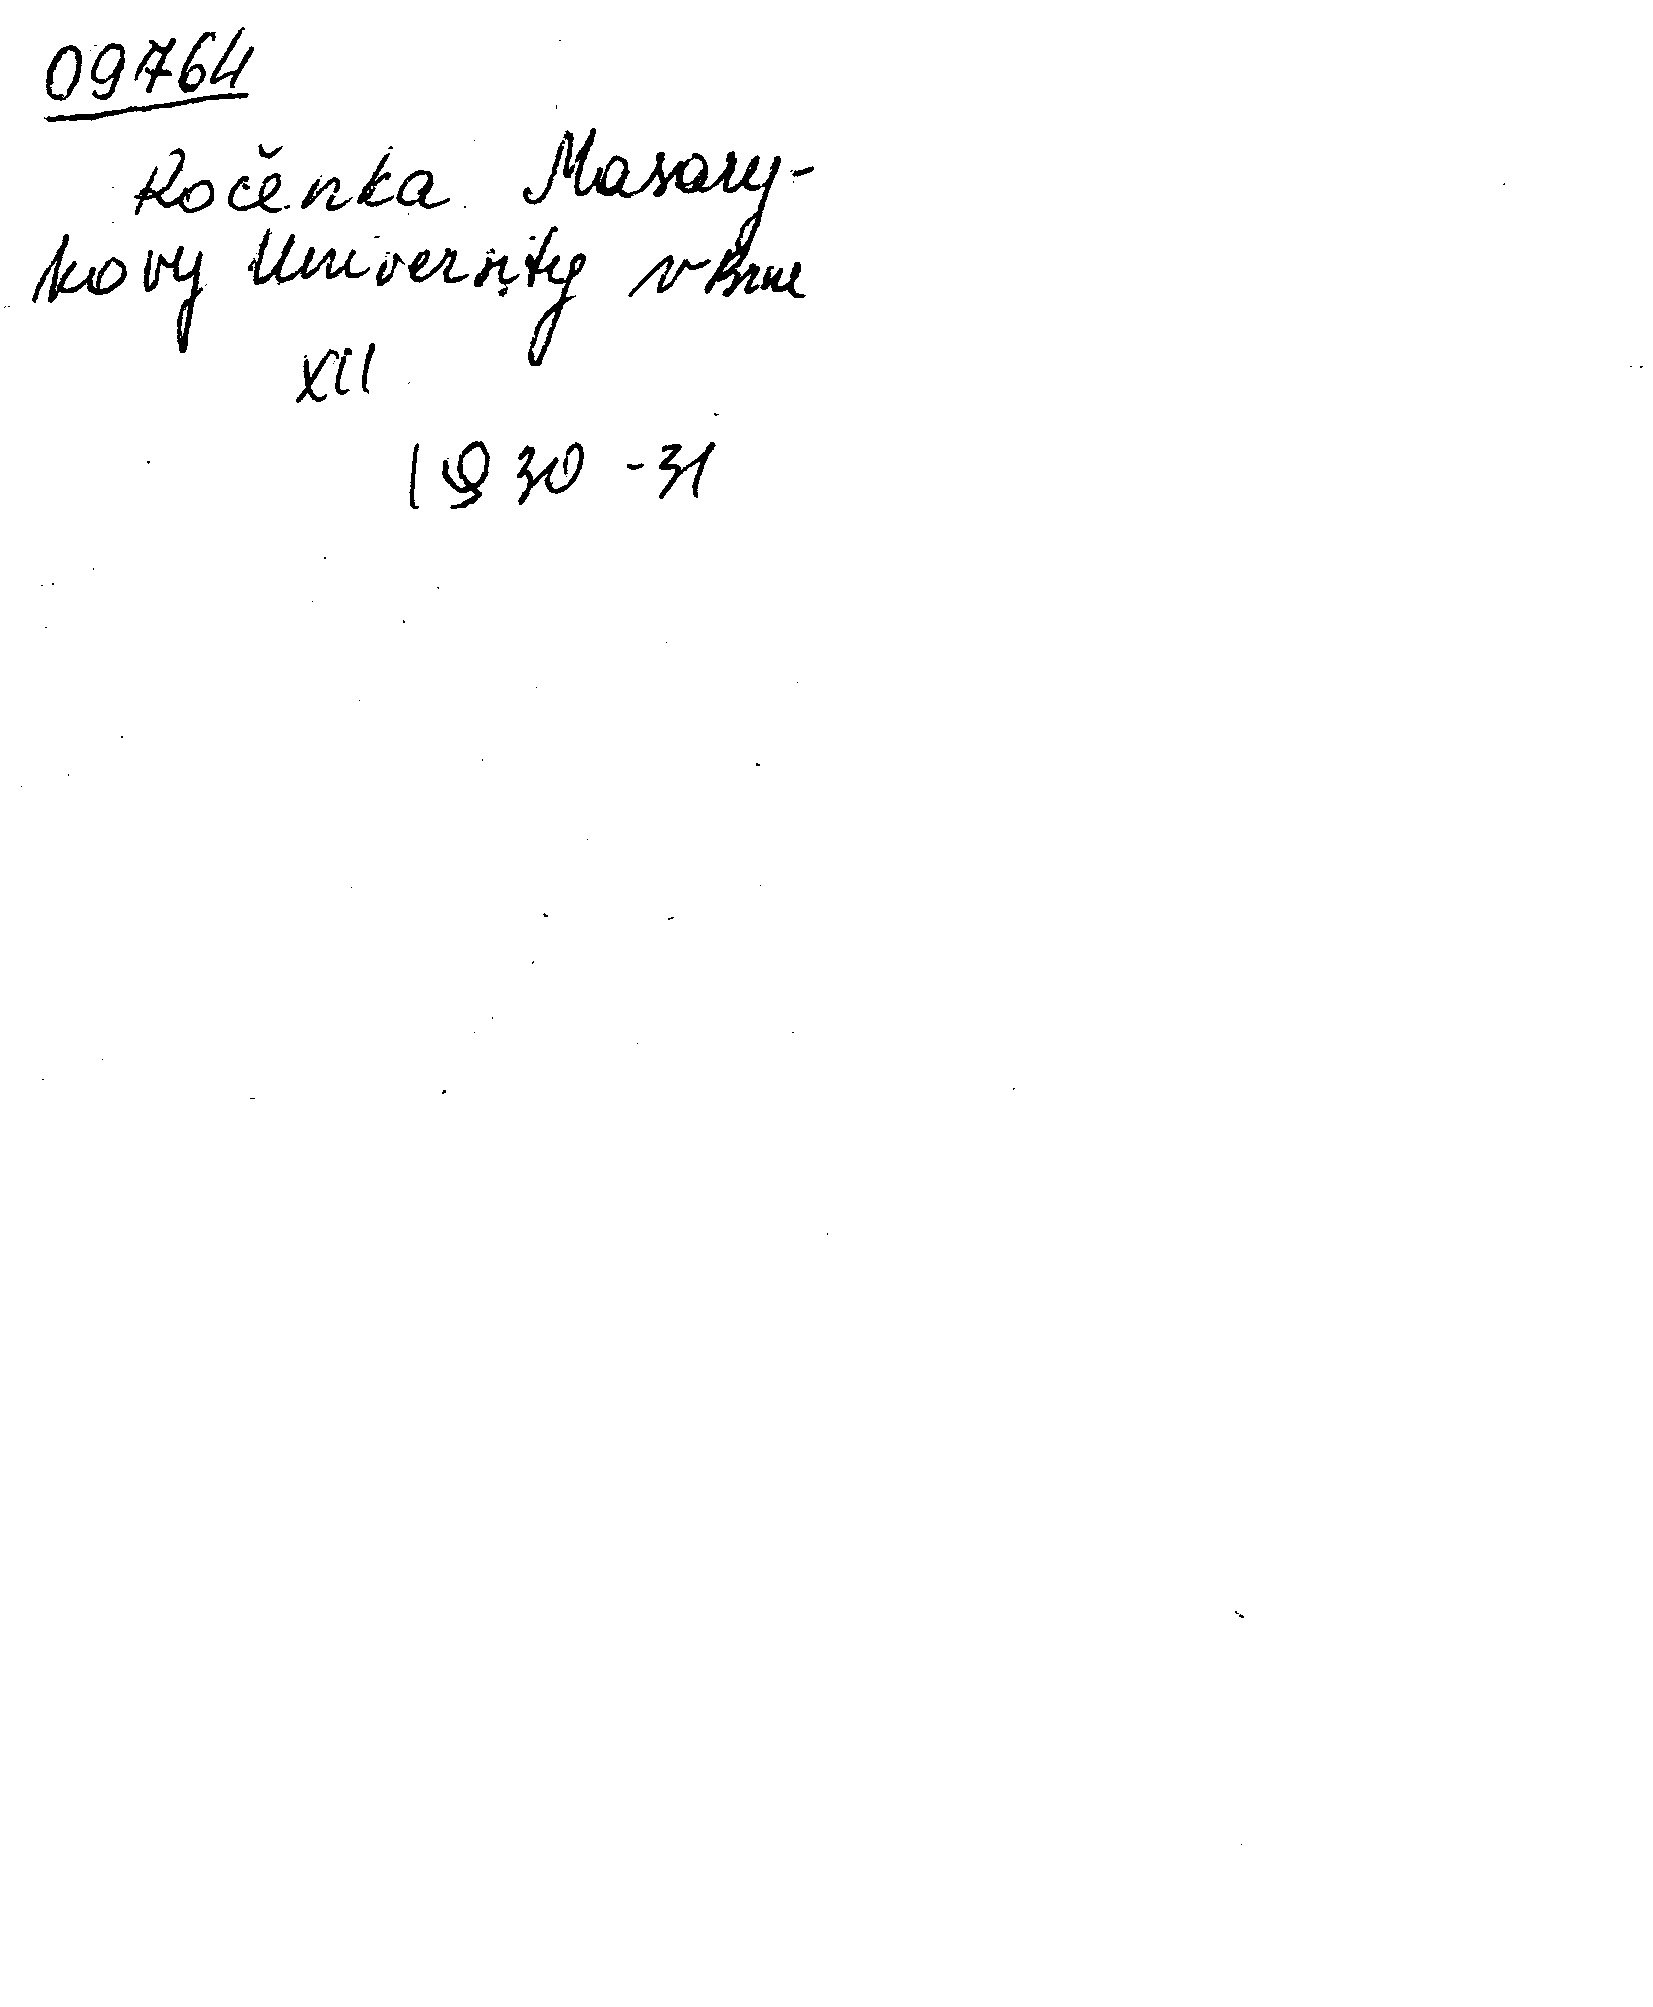 09764
Ročenka Masary-
kovy University v Brne
XII
1930-31